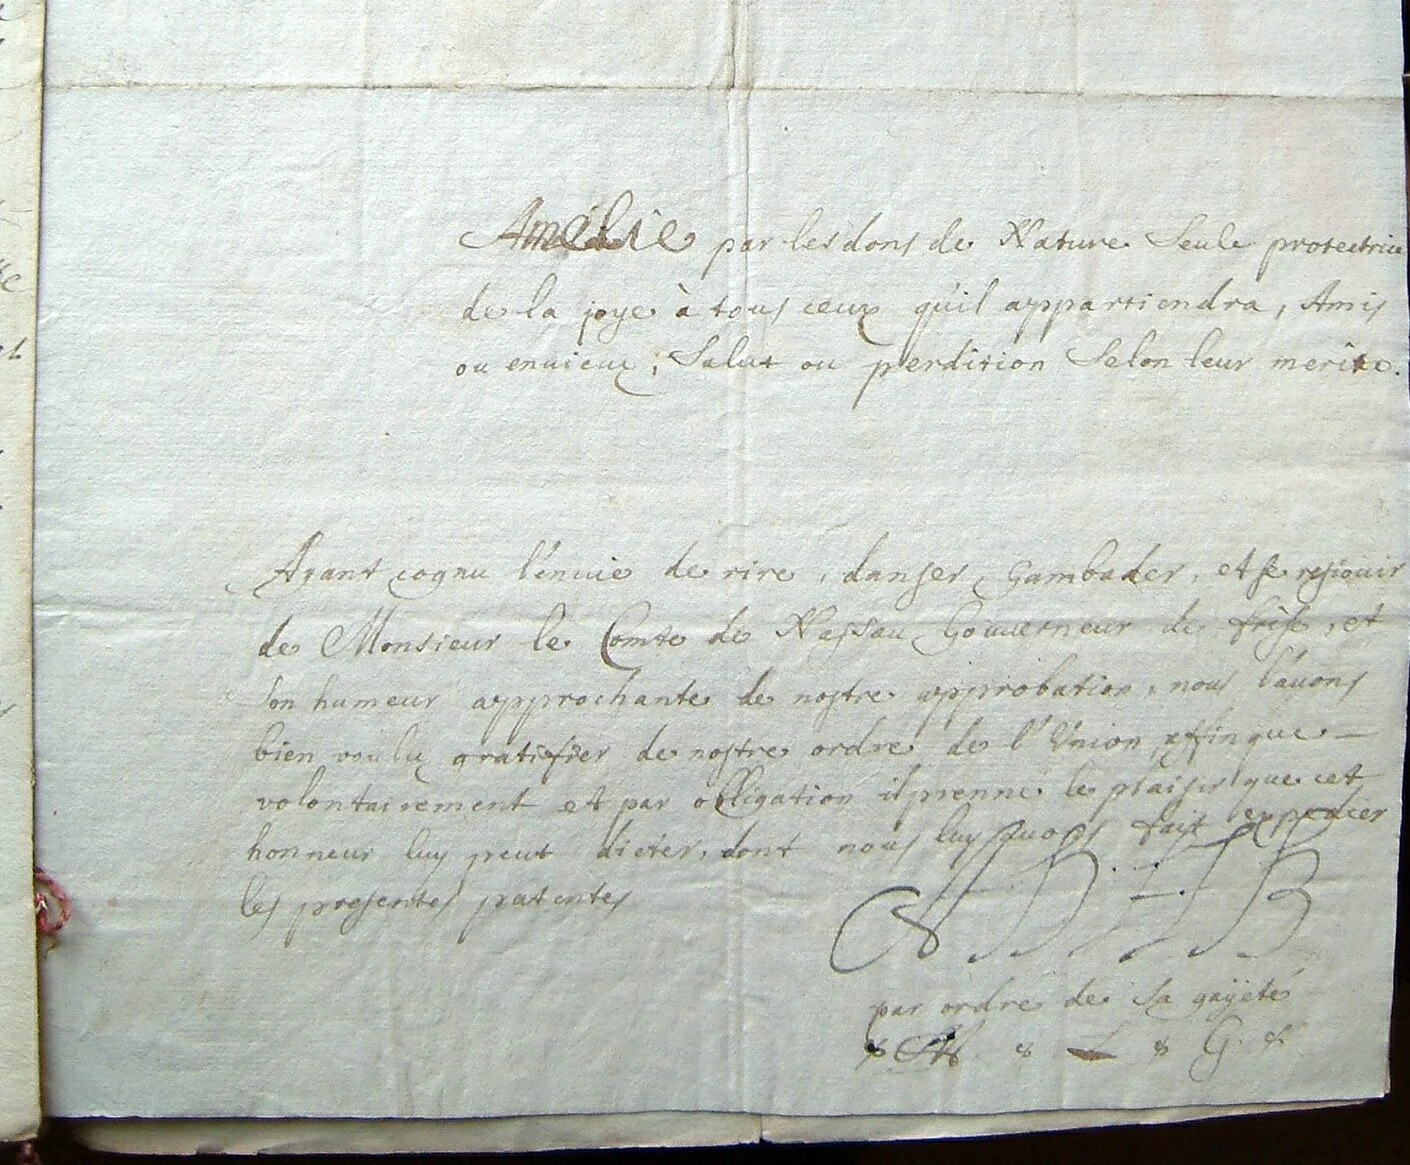 Amélie par les dons de Nature Seule protectrice
de la joye à tous ceux qu'il appartiendra, Amis
ou enuieux, Salut ou perdition Selon leur merite.
Ayant cognu l'enuie de rire, danser, Gambader, et se resiouir
de Monsieur le Comte de Nassau Gouuerneur de frise, et
son humeur approchante de nostre approbation, nous l'auons
bien voulu gratifier de nostre ordre de l'Vnion affin que
volontairement et par obligation il prenne le plaisir que cet
honneur luy peut dicter, dont nous luy auons fait expedier
les presentes patentes
par ordre de Sa gayeté
L G